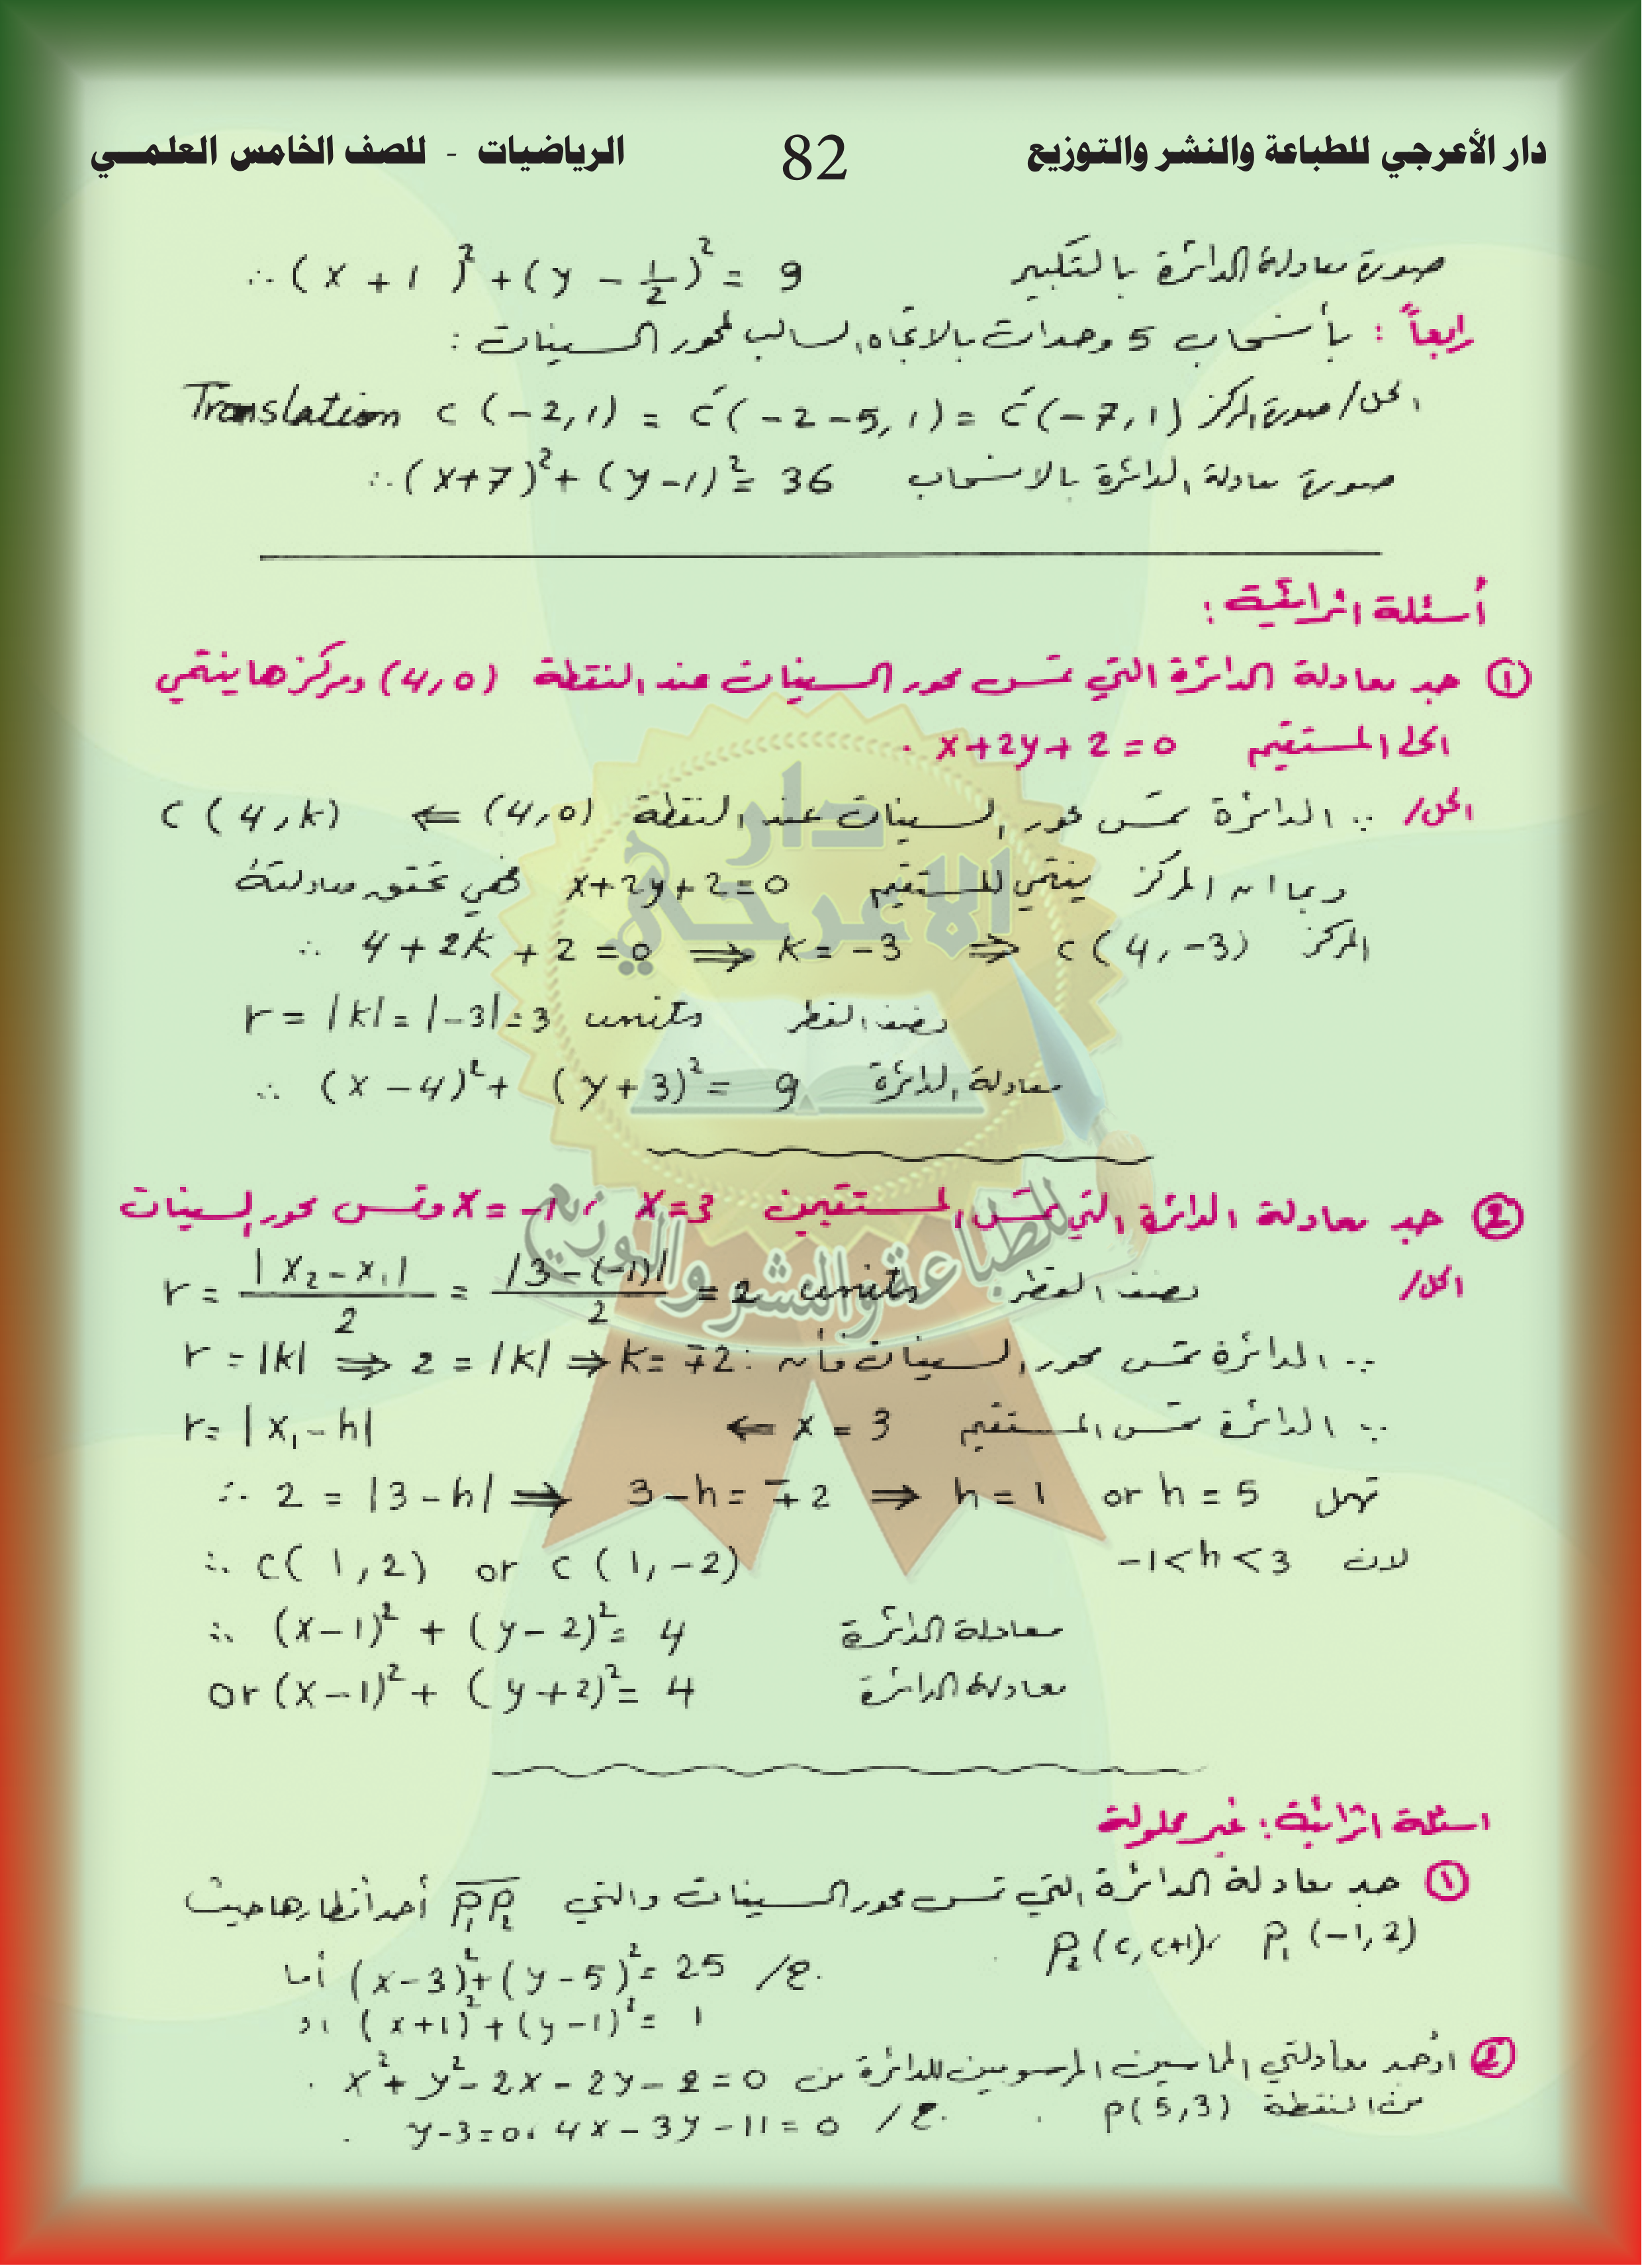 دار الأعرجي للطباعة والنشر والتوزيع 82 الرياضيات - للصف الخامس العلمي
صورة معادلة الدائرة بالتكبير ∴ (x + 1)² + (y - 1/2)² = 9
رابعاً : بأنسحاب 5 وحدات بالاتجاه السالب لمحور السينات :
الحل/ صورة المركز Translation C(-2,1) = C´(-2-5,1) = C´(-7,1)
صورة معادلة الدائرة بالانسحاب ∴ (x+7)² + (y-1)² = 36
أسئلة اثرائية :
① جد معادلة الدائرة التي تمس محور السينات عند النقطة (4,0) ومركزها ينتمي
الى المستقيم x+2y+2=0 .
الحل/ ∵ الدائرة تمس محور السينات عند النقطة (4,0) ⇐ C(4,k)
وبما ان المركز ينتمي للمستقيم x+2y+2=0 فهي تحقق معادلتة
∴ 4+2k+2=0 ⇒ k=-3 ⇒ C(4,-3) المركز
r = |k| = |-3| = 3 units نصف القطر
∴ (x-4)² + (y+3)² = 9 معادلة الدائرة
② جد معادلة الدائرة التي تمس المستقيمين x=3 ، x=-1 وتمس محور السينات
الحل/ نصف القطر r = |x₂-x₁|/2 = |3-(-1)|/2 = 2 units
∵ الدائرة تمس محور السينات فأنه : r=|k| ⇒ 2=|k| ⇒ k=∓2
∵ الدائرة تمس المستقيم x=3 ⇐ r=|x₁-h|
∴ 2=|3-h| ⇒ 3-h=∓2 ⇒ h=1 or h=5 تهمل
∴ C(1,2) or C(1,-2) لان -1<h<3
∴ (x-1)² + (y-2)² = 4 معادلة الدائرة
or (x-1)² + (y+2)² = 4 معادلة الدائرة
اسئلة اثرائية : غير محلولة
① جد معادلة الدائرة التي تمس محور السينات والتي P₁P₂ أحد أقطارها حيث
P₂(c,c+1) ، P₁(-1,2)
ج/ أما (x-3)² + (y-5)² = 25
او (x+1)² + (y-1)² = 1
② أوجد معادلتي المماسين المرسومين للدائرة من x²+y²-2x-2y-2=0 .
من النقطة P(5,3) .
ج/ y-3=0 ، 4x-3y-11=0 .
دار
الاعرجي
للطباعة والنشر والتوزيع